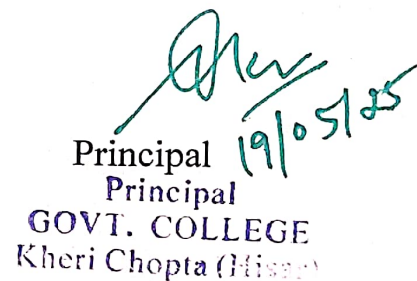 19/05/25
Principal
Principal
GOVT. COLLEGE
Kheri Chopta (Hisar)